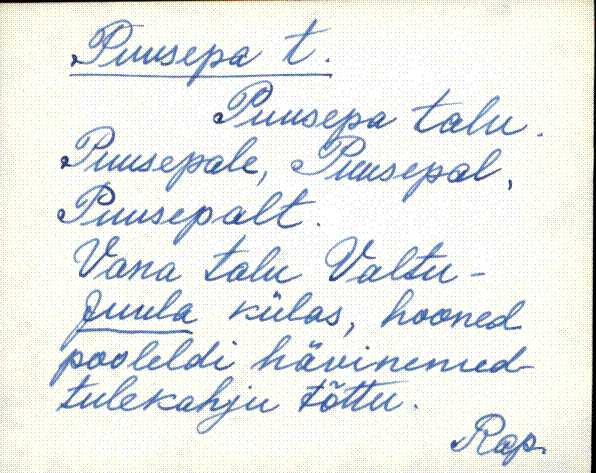 Puusepa t.
Puusepa talu.
Puusepale, Puusepal,
Puusepalt.
Vana talu Valtu-
Juula külas, hooned
pooleldi hävinenud
tulekahju tõttu.
Rap.